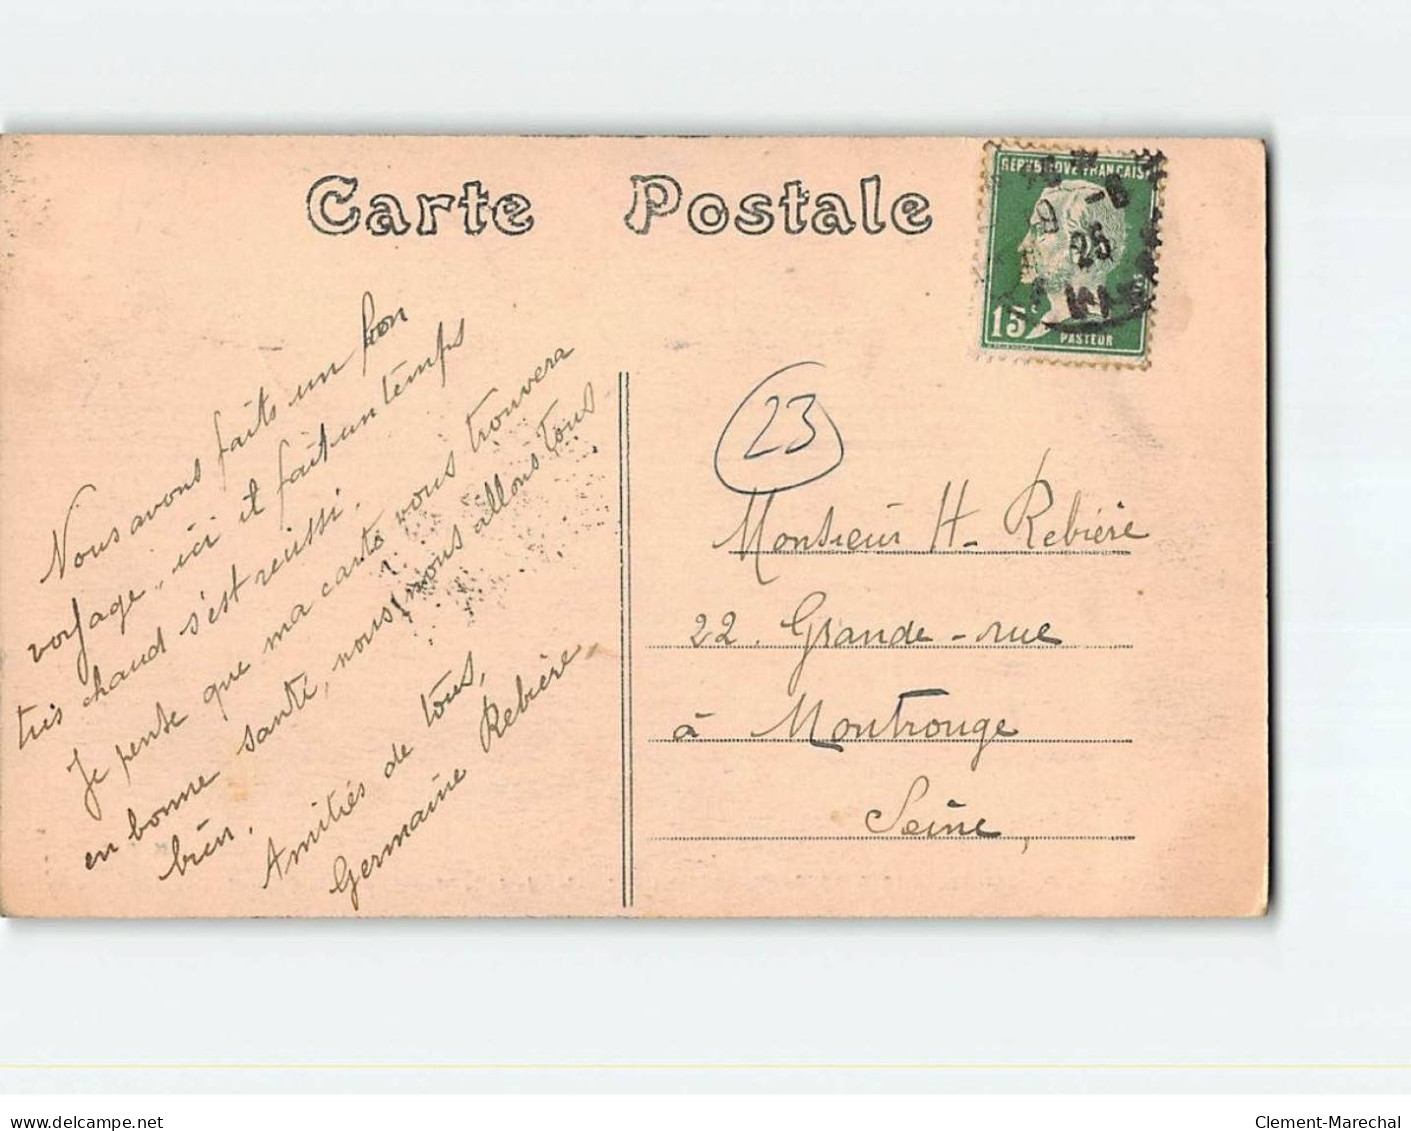 Carte Postale
REPUBLIQUE FRANCAISE
25
15c
PASTEUR
23
Nous avons faits un bon
voyage, ici il fait un temps
très chaud s'est reussi.
Je pense que ma carte vous trouvera
en bonne santé, nous nous allons tous
bien.
Amitiés de tous,
Germaine Rebière.
Monsieur H. Rebière
22. Grande-rue
à Montrouge
Seine,
delcampe.net
Clement-Marechal